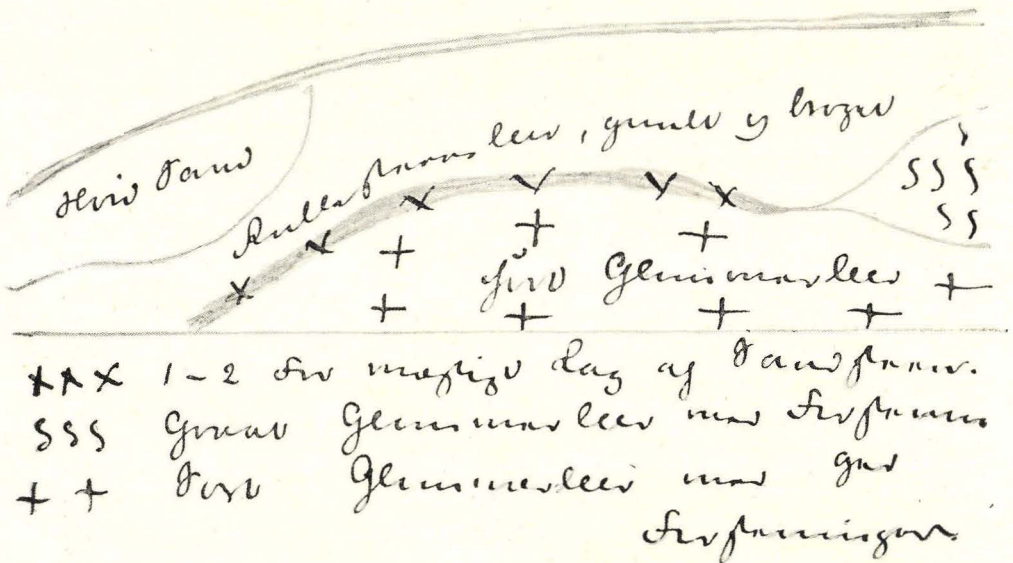 Hvid Sand
Rullesteensleer, guult og broget
Sort Glimmerleer
××× 1-2 Fod mægtigt Lag af Sandsteen.
SSS Graat Glimmerleer med Forsteninn
+ + Sort Glimmerleer med
Forsteninger.